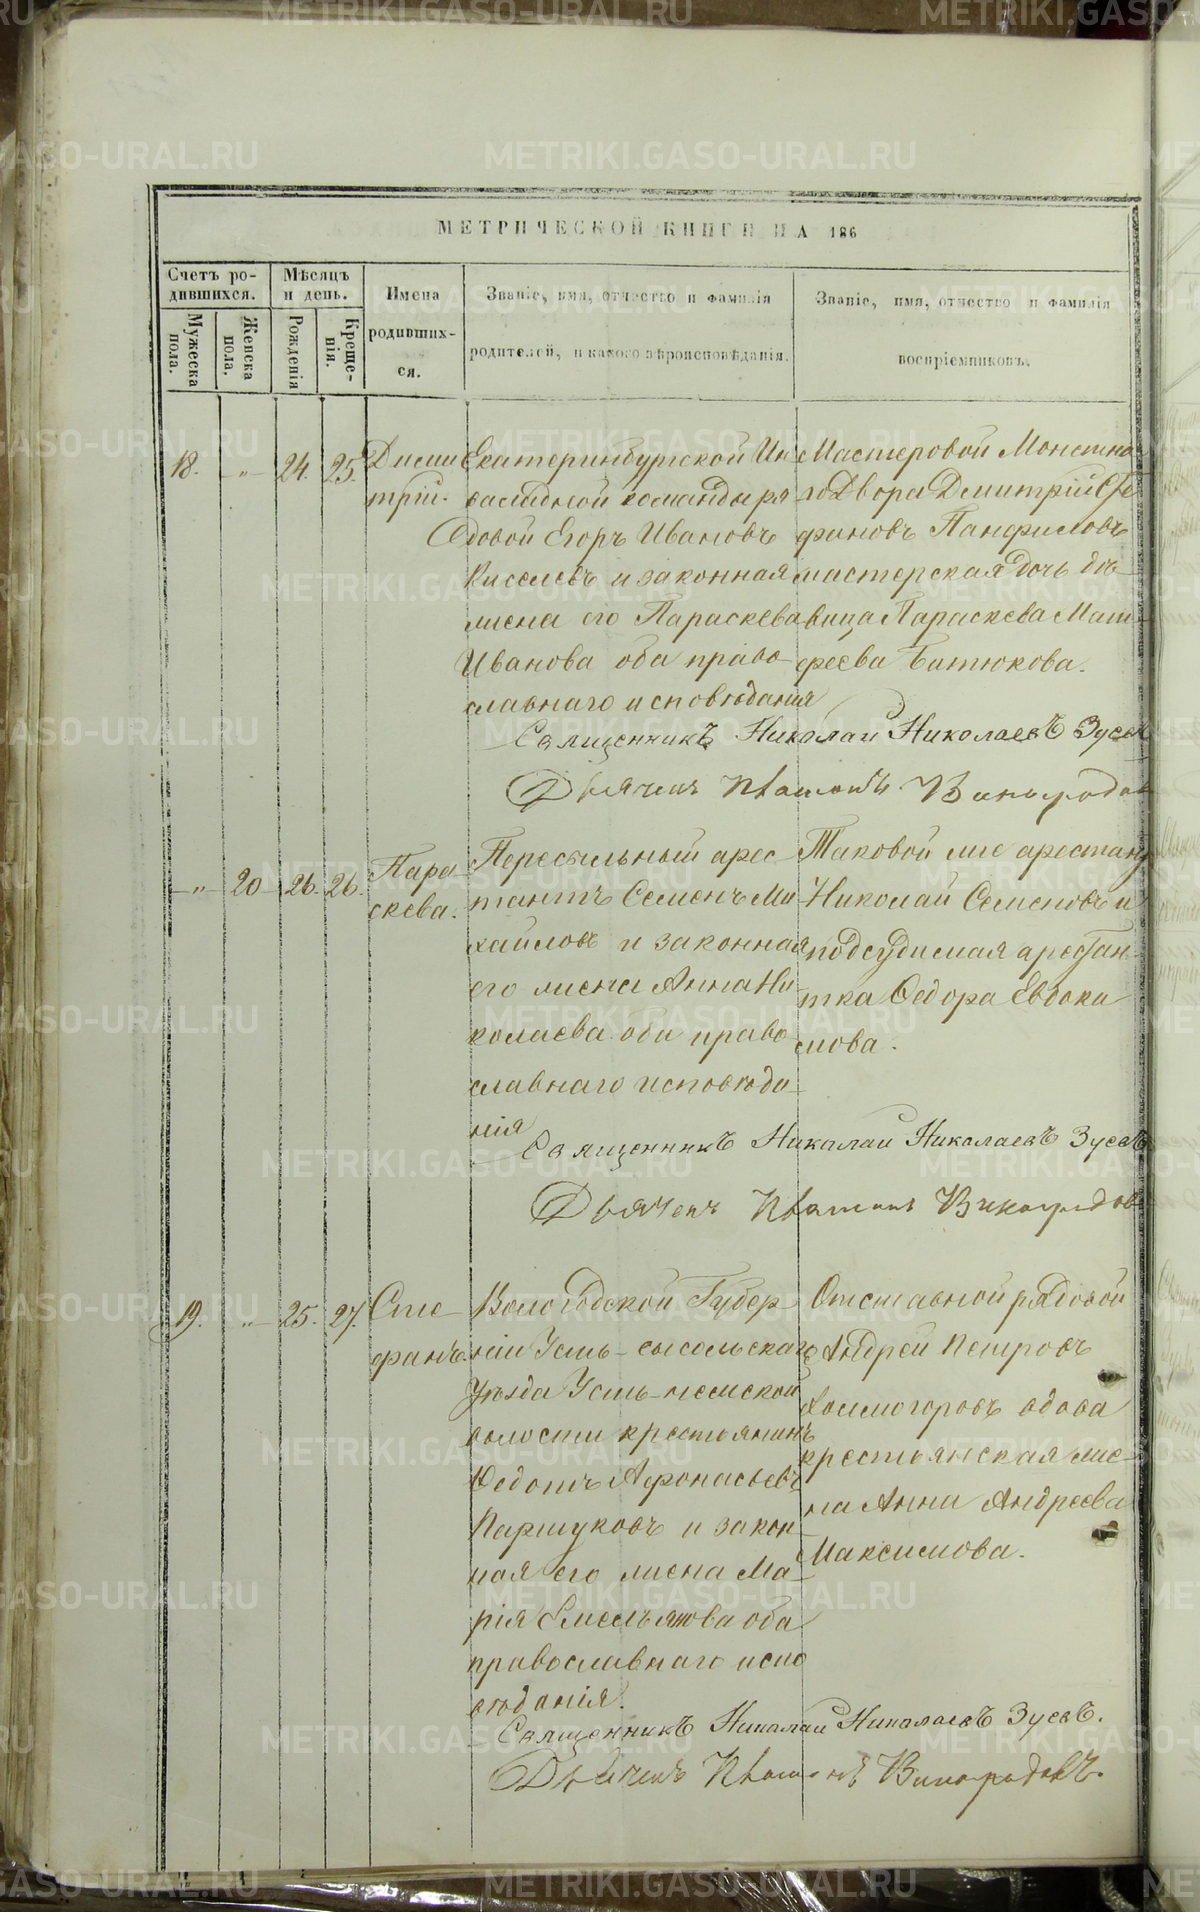 МЕТРИЧЕСКОЙ КНИГИ НА 186
Счетъ ро-
дившихся.
Мужеска
пола.
Женска
пола.
Мѣсяцъ
и день.
Рожденія
Креще-
нія.
Имена
родивших-
ся.
Званіе, имя, отчество и фамилія
родителей, и какого вѣроисповѣданія.
Званіе, имя, отчество и фамилія
воспріемниковъ.
18. „ 24. 25.
Дими
трій.
Екатеринбургской Ин
валидной команды ря
довой Егоръ Ивановъ
Киселевъ и законная
жена его Параскева
Иванова оба право-
славнаго исповѣданія
Мастеровой Монетна
го Двора Димитрій Сте
фановъ Панфиловъ
мастерская дочь дѣ-
вица Параскева Мат-
феева Битюкова.
Священникъ Николай Николаевъ Зуевъ
Дьячекъ Платонъ Виноградов
„ 20 26. 26.
Пара-
скева.
Пересыльный арес-
тантъ Семенъ Ми
хайловъ и законная
его жена Анна Ни-
колаева оба право
славнаго исповѣда-
нія
Таковой же арестан
Николай Семеновъ и
подсудимая арестан
тка Федора Евдоки
мова.
Священникъ Николай Николаевъ Зуевъ
Дьячекъ Платонъ Виноградов
19. „ 25. 27.
Сте-
фанъ.
Вологодской Губер
ніи Усть-сысольскаго
Уѣзда Усть-немской
волости крестьянинъ
Федотъ Афонасьевъ
Паршуковъ и закон
ная его жена Ма-
рія Емельянова оба
православнаго испо
вѣданія.
Отставной рядовой
Андрей Петровъ
Холмогоровъ вдова
крестьянская же-
на Анна Андреева
Максимова.
Священникъ Николай Николаевъ Зуевъ.
Дьячекъ Платонъ Виноградовъ.
METRIKI.GASO-URAL.RU